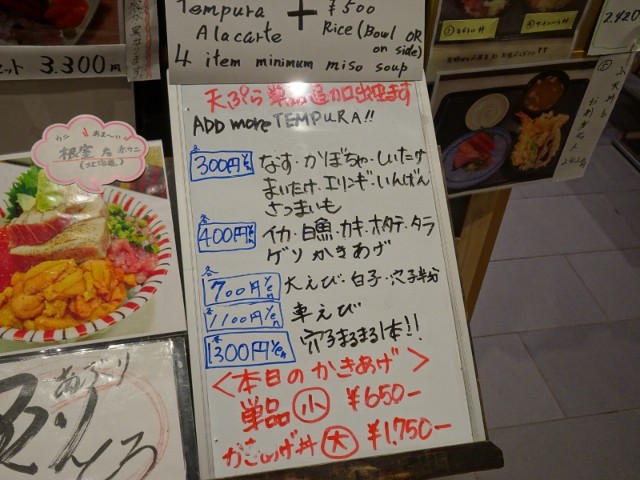 Tempura + ¥500
Alacarte Rice (Bowl OR
on side)
4 item minimum miso soup
天ぷら 単品追加出来ます
ADD more TEMPURA!!
各 300円/Yen なす・かぼちゃ・しいたけ
まいたけ・エリンギ・いんげん
さつまいも
各 400円/Yen イカ・白魚・カキ・ホタテ・タラ
ゲソ かきあげ
各 700円/Yen 大えび・白子・穴子半分
1100円/Yen 車えび
1300円/Yen 穴子まるまる1本!!
<本日のかきあげ>
単品 小 ¥650-
かきあげ丼 大 ¥1,750-
セット 3.300円
カニ
根室 産
(北海道)
あぶり
2,420